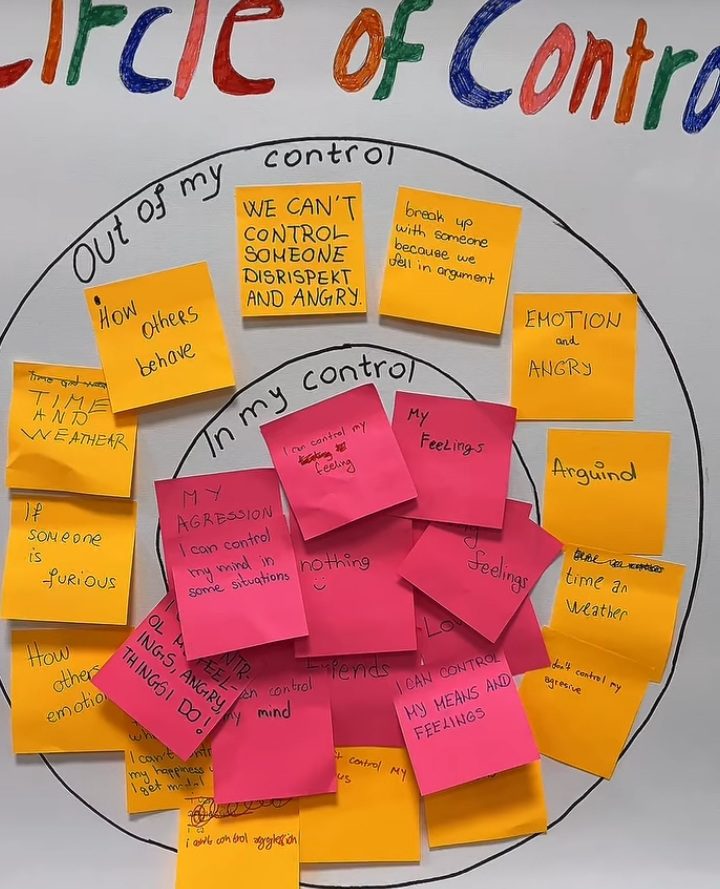 Circle of Control
Out of my control
WE CAN'T
CONTROL
SOMEONE
DISRISPEKT
AND ANGRY.
break up
with someone
because we
fell in argument
How
others
behave
EMOTION
and
ANGRY
TIME
AND
WEATHEAR
In my control
I can control my
feeling
My
FeeLings
Arguind
MY
AGRESSION
I can control
my mind in
some situations
If
someone
is
furious
nothing
feelings
time an
Weather
How
others
emotion
THINGS I DO!
Friends
can control
my mind
I CAN CONTROL
MY MEANS AND
FEELINGS
don't control my
agresive
I can't
my happiness
I get
control MY
i can't control aggression